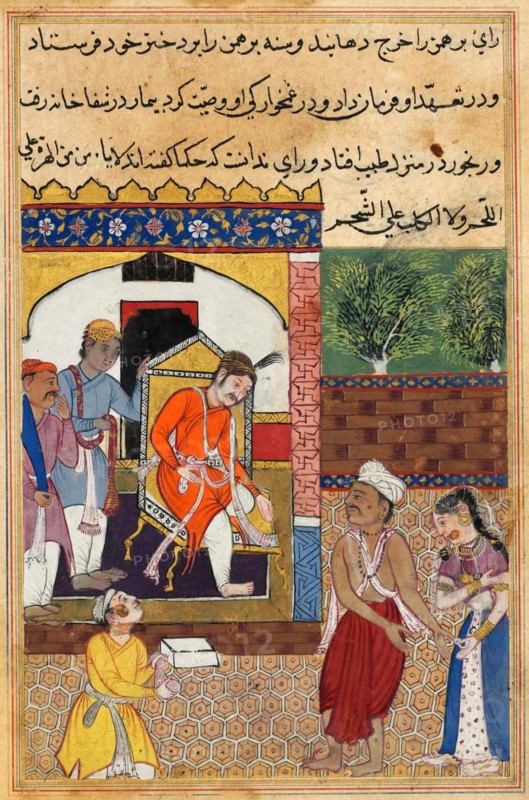 رای برهمن را خرج دهانید و سنه برهمن را بر دختر خود فرستاد
و در تعهّد او فرمان داد و در غمخوارکی او وصیّت کرد بیمار در شفاخانه رفت
و رنجور در منزل طبیب افتاد و رای ندانست که حکما کفته اند لایامن من الهرة علی
اللحم ولا الکلب علی الشّحم
PHOTO12